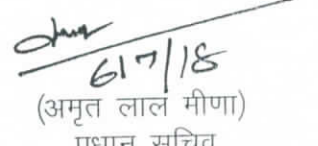 6/7/18
(अमृत लाल मीणा)
प्रधान सचिव